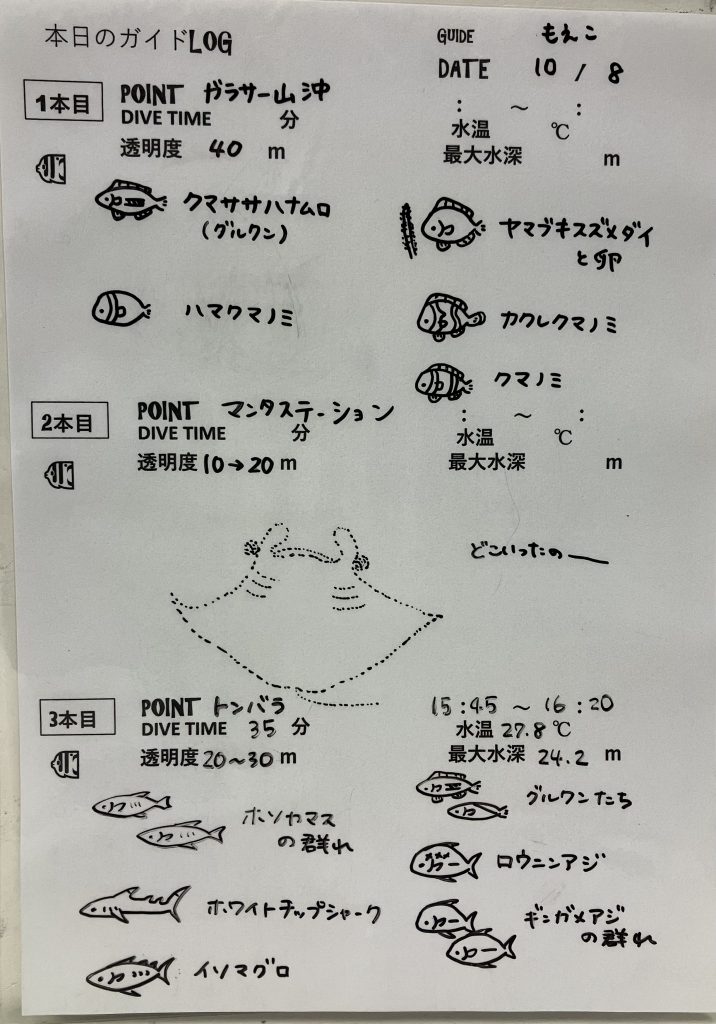 本日のガイドLOG
GUIDE もえこ
DATE 10 / 8
1本目
POINT ガラサー山沖
DIVE TIME 分
: ～ :
透明度 40 m
水温 ℃
最大水深 m
クマササハナムロ
(グルクン)
ヤマブキスズメダイ
と卵
ハマクマノミ
カクレクマノミ
クマノミ
2本目
POINT マンタステーション
DIVE TIME 分
: ～ :
透明度 10→20 m
水温 ℃
最大水深 m
どこいったのー
3本目
POINT トンバラ
DIVE TIME 35 分
15:45 ～ 16:20
透明度 20～30 m
水温 27.8 ℃
最大水深 24.2 m
ホソカマス
の群れ
グルクンたち
ロウニンアジ
ホワイトチップシャーク
ギンガメアジ
の群れ
イソマグロ